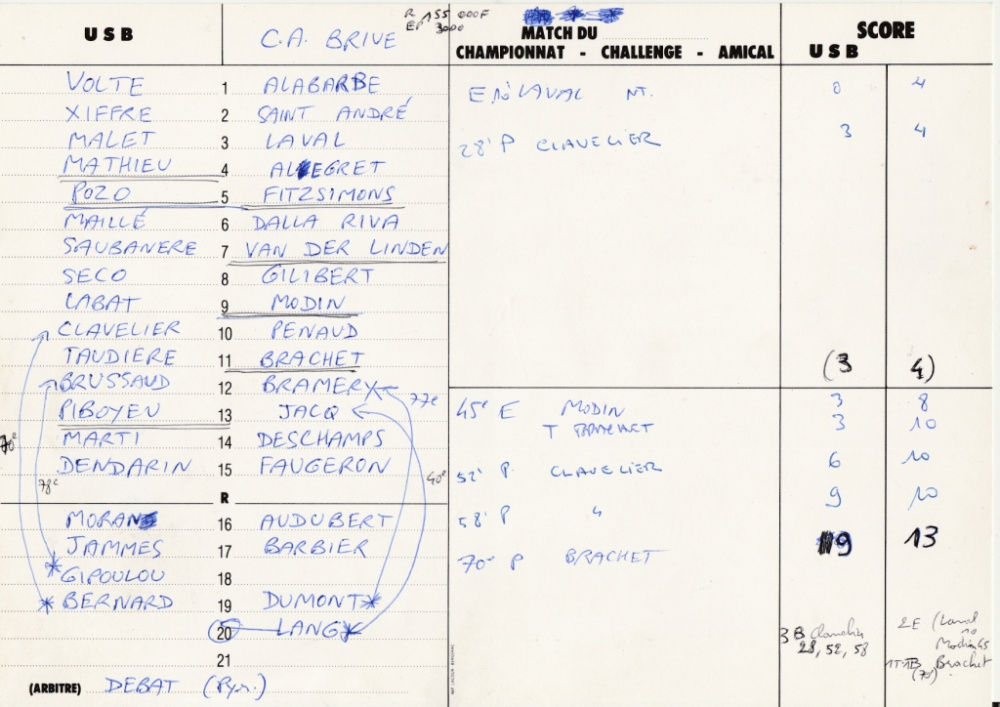 R 155 000F
EP 3000
USB C.A. BRIVE
VOLTE 1 ALABARBE
XIFFRE 2 SAINT ANDRÉ
MALET 3 LAVAL
MATHIEU 4 ALLEGRET
POZO 5 FITZSIMONS
MAILLÉ 6 DALLA RIVA
SAUBANERE 7 VAN DER LINDEN
SECO 8 GILIBERT
LABAT 9 MODIN
CLAVELIER 10 PENAUD
TAUDIERE 11 BRACHET
BRUSSAUD 12 BRAMERY 77e
PIBOYEU 13 JACQ
70e MARTI 14 DESCHAMPS
DENDARIN 15 FAUGERON
78e 40e
R
MORAN 16 AUDUBERT
JAMMES 17 BARBIER
GIPOULOU 18
BERNARD 19 DUMONT
20 LANG
21
(ARBITRE) DEBAT (Pyr.)
MATCH DU
CHAMPIONNAT - CHALLENGE - AMICAL
SCORE
USB
E 10' LAVAL NT. 0 4
28' P CLAVELIER 3 4
(3 4)
45' E MODIN 3 8
T BRACHET 3 10
52' P. CLAVELIER 6 10
58' P " 9 10
70' P BRACHET 9 13
3 B Clavelier
28, 52, 58
2E (Laval
10
Modin 45
1T1B Brachet
(70')